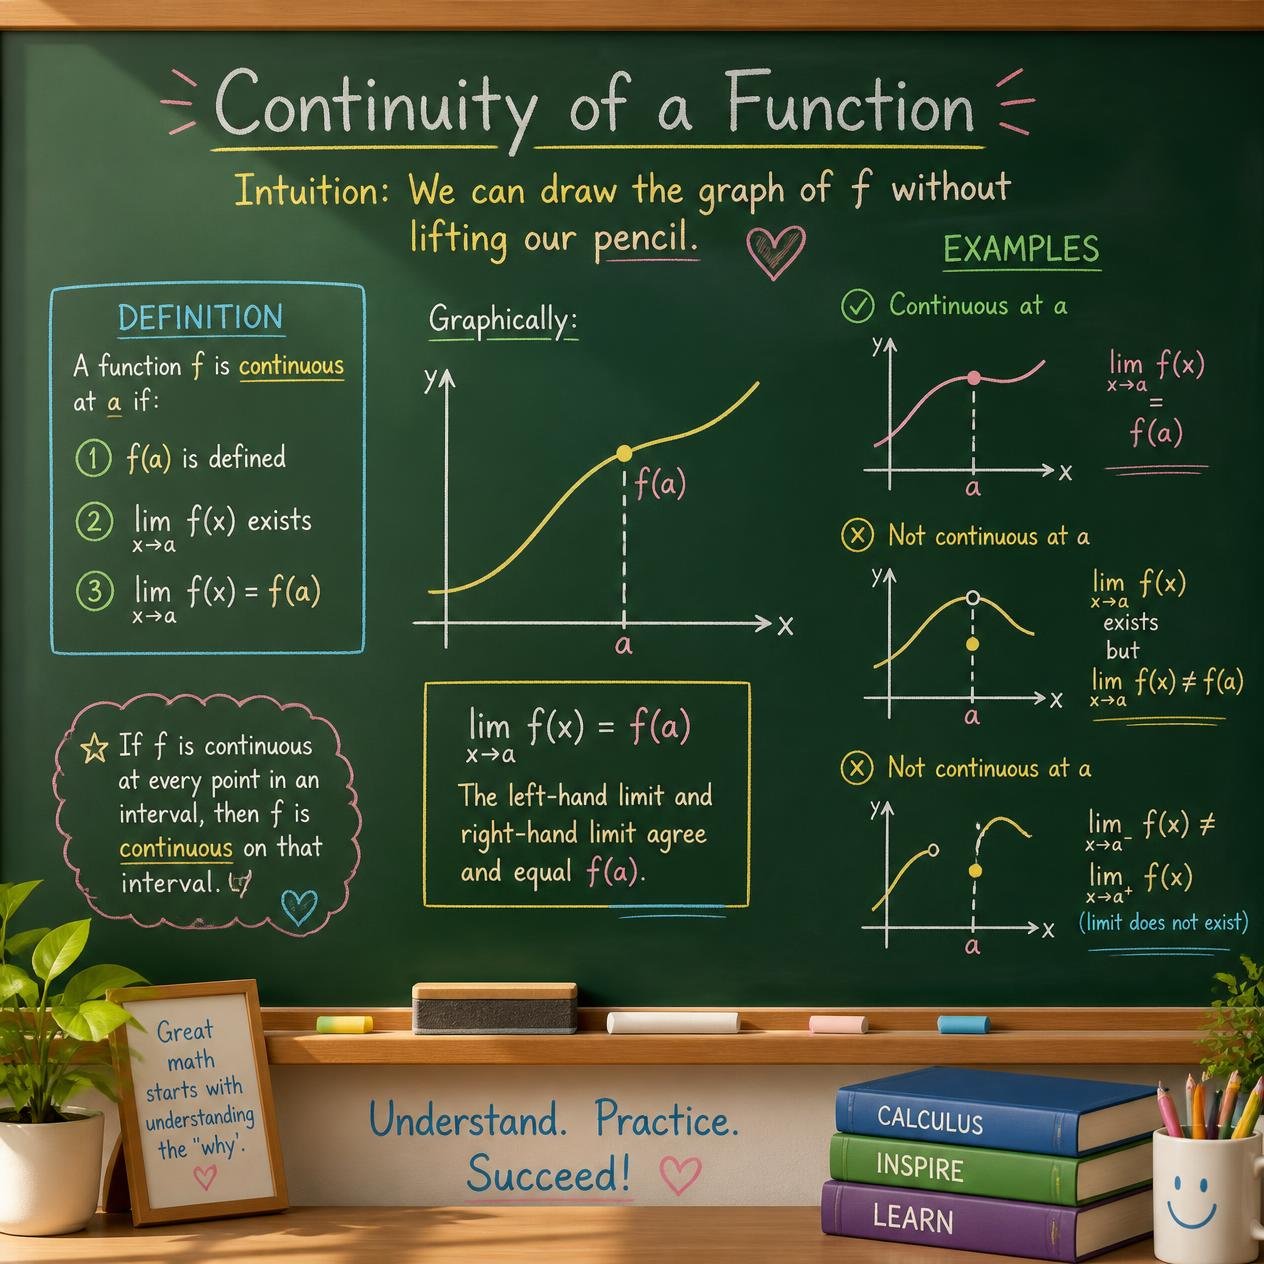 Continuity of a Function
Intuition: We can draw the graph of f without
lifting our pencil.
DEFINITION
A function f is continuous
at a if:
1 f(a) is defined
2 lim f(x) exists
x→a
3 lim f(x) = f(a)
x→a
☆ If f is continuous
at every point in an
interval, then f is
continuous on that
interval.
Graphically:
y
f(a)
x
a
lim f(x) = f(a)
x→a
The left-hand limit and
right-hand limit agree
and equal f(a).
EXAMPLES
Continuous at a
y
x
a
lim f(x)
x→a
=
f(a)
Not continuous at a
y
x
a
lim f(x)
x→a
exists
but
lim f(x) ≠ f(a)
x→a
Not continuous at a
y
x
a
lim f(x) ≠
x→a-
lim f(x)
x→a+
(limit does not exist)
Great
math
starts with
understanding
the "why'.
Understand. Practice.
Succeed!
CALCULUS
INSPIRE
LEARN